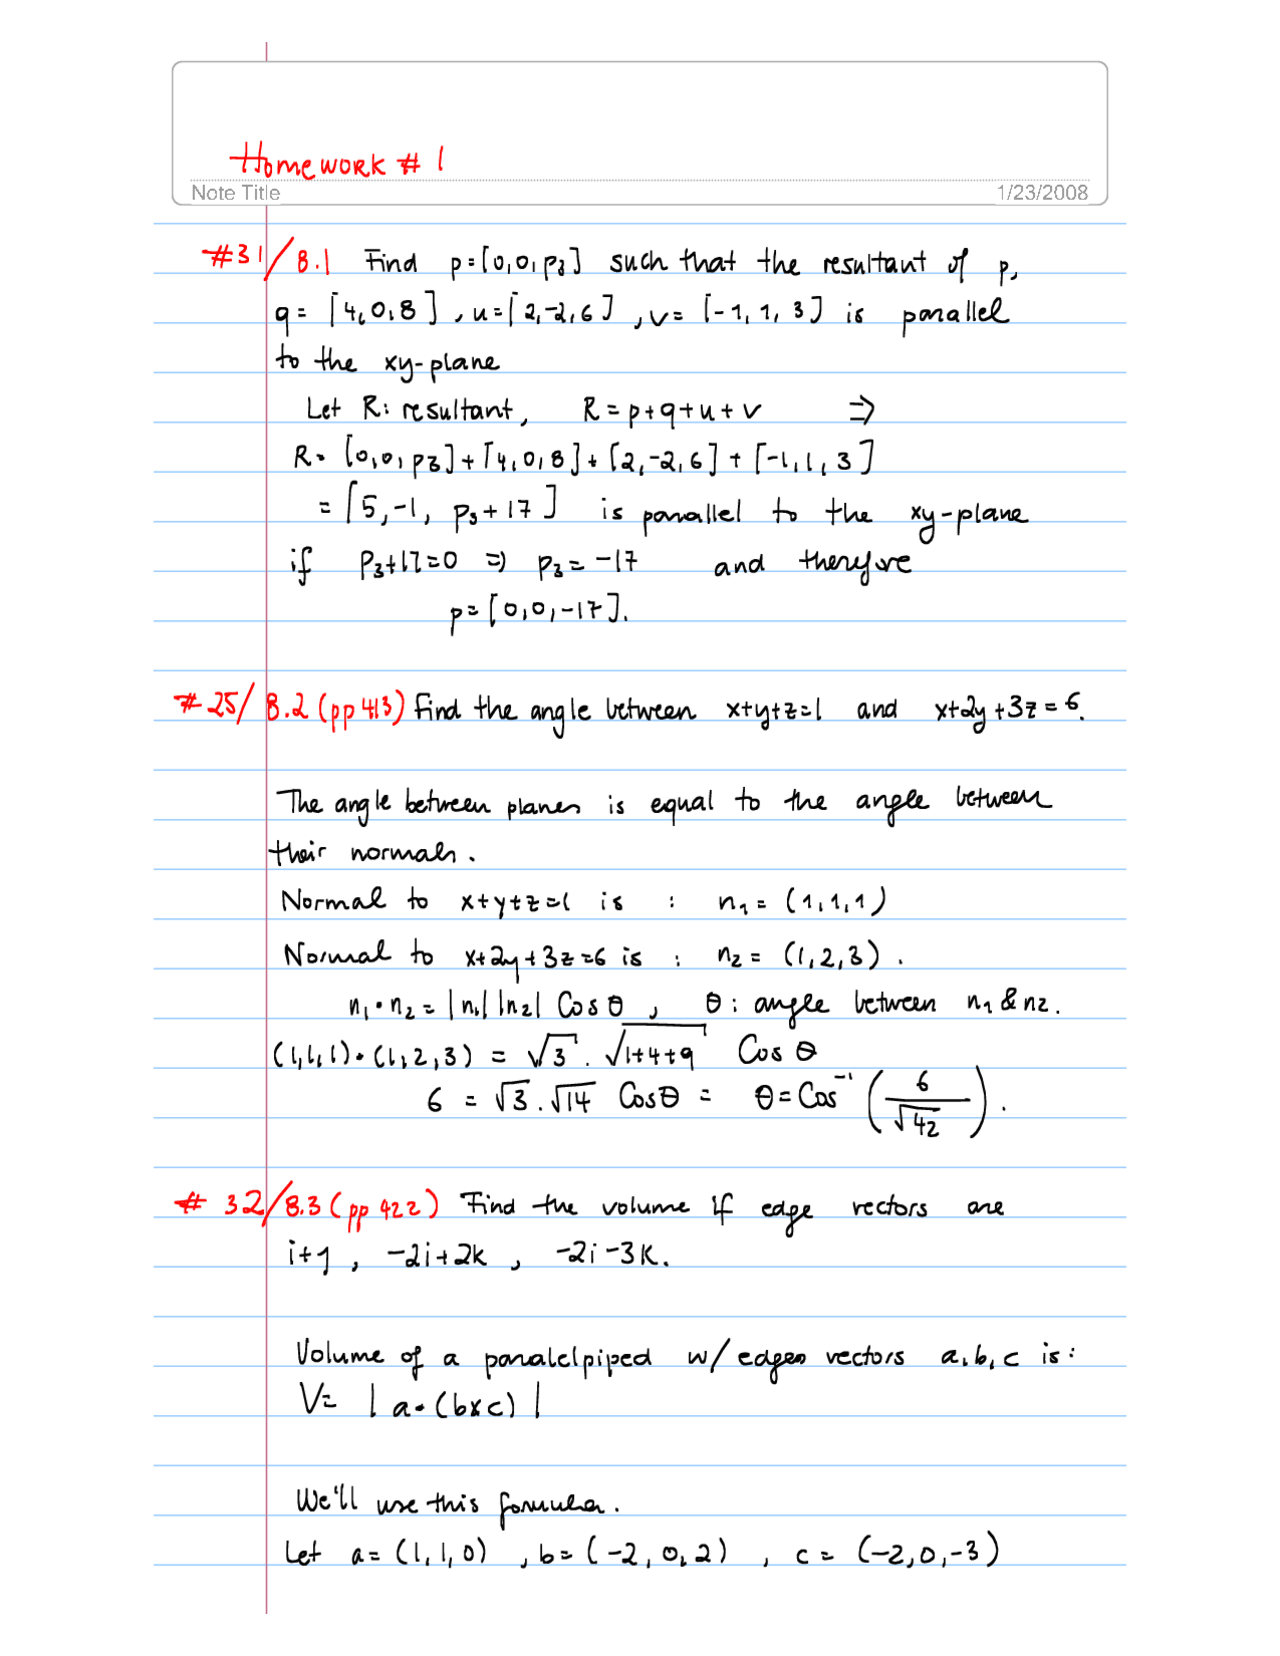 Homework # 1
Note Title 1/23/2008
#31/8.1 Find p=[0,0,p3] such that the resultant of p,
q= [4,0,8] , u=[2,-2,6] , v= [-1, 1, 3] is parallel
to the xy-plane
Let R: resultant, R=p+q+u+v ⇒
R= [0,0,p3]+[4,0,8]+[2,-2,6]+[-1,1,3]
= [5,-1, p3+17] is parallel to the xy-plane
if P3+17=0 ⇒ p3=-17 and therefore
p=[0,0,-17].
# 25/8.2 (pp 413) Find the angle between x+y+z=1 and x+2y+3z=6.
The angle between planes is equal to the angle between
their normals.
Normal to x+y+z=1 is : n1= (1,1,1)
Normal to x+2y+3z=6 is : n2= (1,2,3) .
n1•n2=|n1||n2| Cos θ , θ: angle between n1 & n2.
(1,1,1)•(1,2,3) = √3 . √1+4+9 Cos θ
6 = √3.√14 Cosθ = θ=Cos⁻¹ (6/√42).
# 32/8.3 (pp 422) Find the volume if edge vectors are
i+j , -2i+2k , -2i-3k.
Volume of a paralelpiped w/ edges vectors a,b,c is:
V= |a•(b×c)|
We'll use this formula.
Let a=(1,1,0) , b=(-2,0,2) , c= (-2,0,-3)